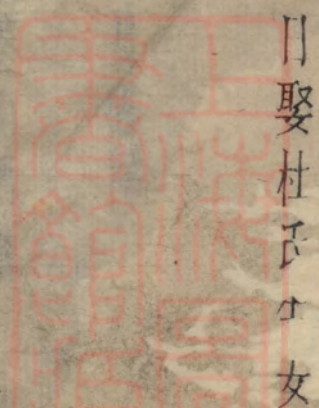 娶杜氏生女
上海圖
書館藏